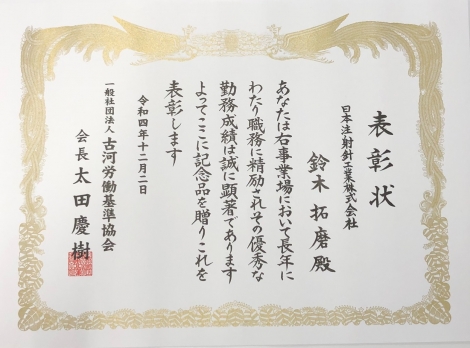 表彰状
日本注射針工業株式会社
鈴木拓磨殿
あなたは右事業場において長年に
わたり職務に精励されその優秀な
勤務成績は誠に顕著であります
よってここに記念品を贈りこれを
表彰します
令和四年十二月二日
一般社団法人 古河労働基準協会
会長 太田慶樹